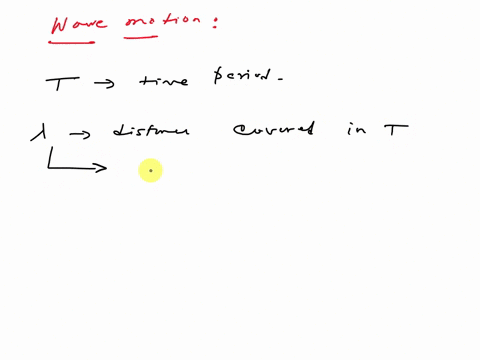 Wave motion:
T → time period.
λ → distance covered in T